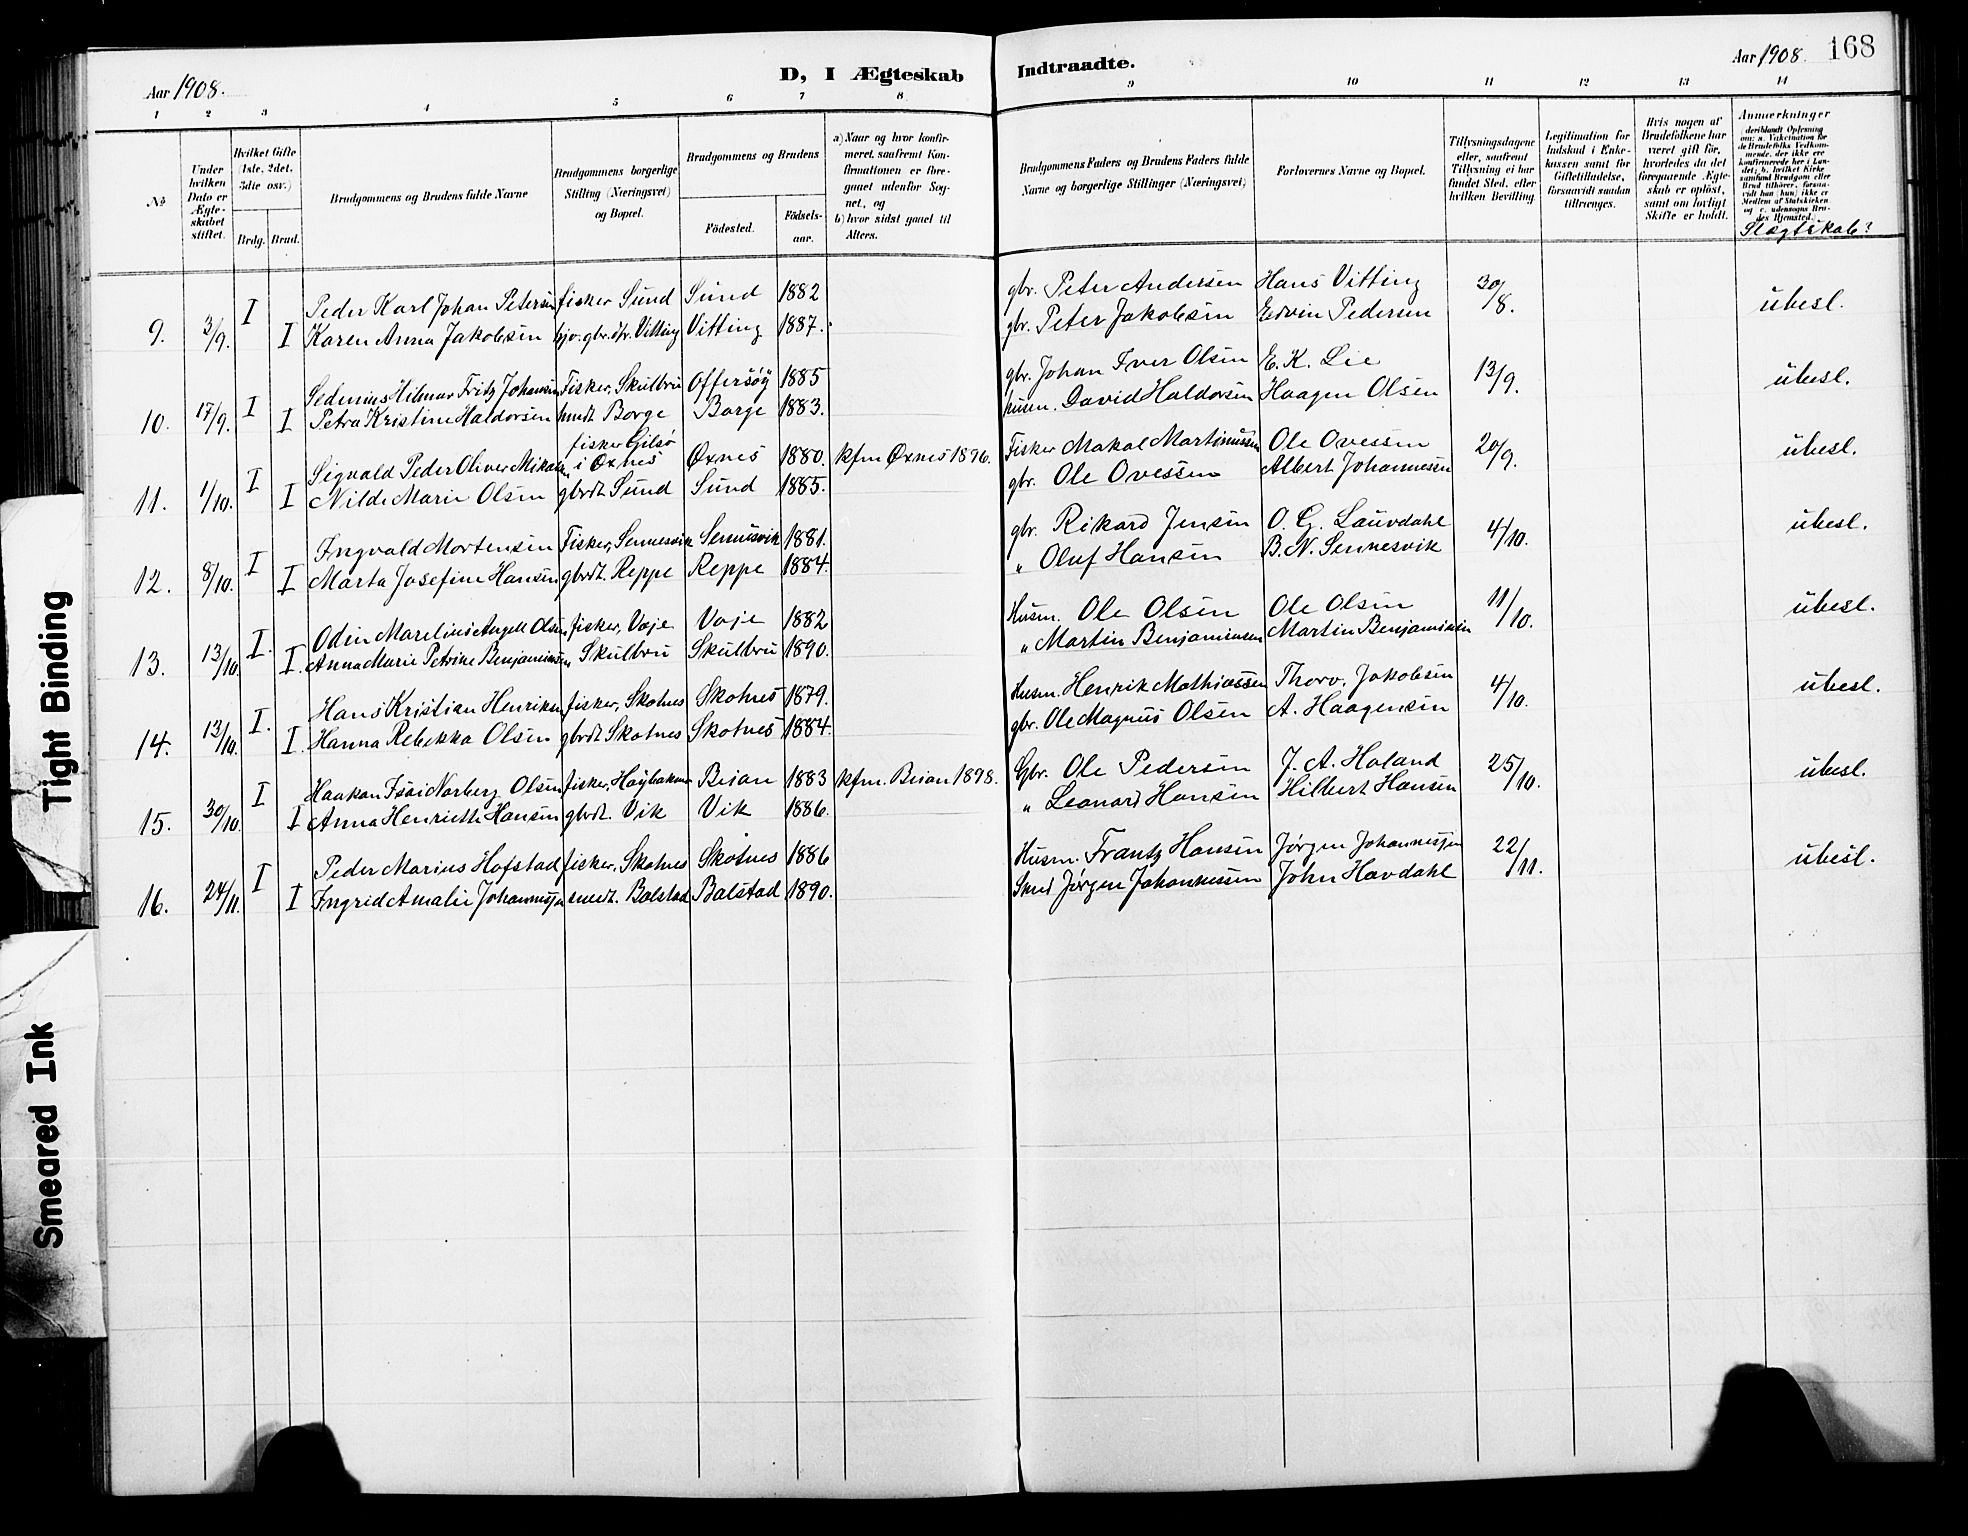 Aar 1908.
D, I Ægteskab
Indtraadte.
Aar 1908. 168
1 2 3 4 5 6 7 8 9 10 11 12 13 14
No
Under hvilken Dato er Ægte-skabet stiftet.
Hvilket Gifte (1ste, 2det, 3die osv.)
Brdg. Brud.
Brudgommens og Brudens fulde Navne
Brudgommens borgerlige Stilling (Næringsvei) og Bopæl.
Brudgommens og Brudens
Födested.
Födsels-aar.
a) Naar og hvor konfir-meret, saafremt Kon-firmationen er fore-gaaet udenfor Sog-net, og
b) hvor sidst gaaet til Alters.
Brudgommens Faders og Brudens Faders fulde Navne og borgerlige Stillinger (Næringsvei)
Forlovernes Navne og Bopæl.
Tillysningsdagene eller, saafremt Tillysning ei har fundet Sted, efter hvilken Bevilling.
Legitimation for Indskud i Enke-kassen samt for Giftetilladelse, forsaavidt saadan tiltrænges.
Hvis nogen af Brudefolkene har været gift før, hvorledes da det foregaaende Ægte-skab er opløst, samt om lovligt Skifte er holdt.
Anmærkninger
Slægtskab?
9. 3/9. I Peder Karl Johan Petersen fisker Sund Sund 1882 gbr. Peter Andersen Hans Vitting 30/8. übesl.
I Karen Anna Jakobsen hjv. gbr. dtr. Vitting Vitting 1887. gbr. Peter Jakobsen Edvin Pedersen
10. 17/9. I Sedenius Hilmar Fritz Johansen Fisker, Skulbru Offersøy 1885 gbr. Johan Iver Olsen E. K. Lie 13/9. übesl.
I Petra Kristine Haldorsen husdt. Borge Borge 1883. husm. David Haldorsen Haagen Olsen
11. 1/10. I Sigvald Peder Oliver fisker Gilsø i Øxnes Øxnes 1880. kfm Øxnes 1896. Fisker Makal Martinussen Ole Ovessen 20/9. übesl.
I Nilde Marie Olsen gbrdt Sund Sund 1885. gbr. Ole Ovessen Albert Johannessen
12. 8/10. I Ingvald Mortensen Fisker, Sennesvik Sennesvik 1881. gbr. Rikard Jensen O. G. Lauvdahl 4/10. übesl.
I Marta Josefine Hansen gbrdt. Reppe Reppe 1884. " Oluf Hansen B. N. Sennesvik
13. 13/10. I. Odin Marelius Angell Olsen fisker, Voje Voje 1882 Husm. Ole Olsen Ole Olsen 11/10. übesl.
I. Anna Marie Petrine Benjaminsen Skulbru Skulbru 1890. " Martin Benjaminsen Martin Benjaminsen
14. 13/10. I. Hans Kristian Henriksen fisker, Skotnes Skotnes 1879. Husm. Henrik Mathiassen Thorv. Jakobsen 4/10. übesl.
I. Hanna Rebekka Olsen gbrdt Skotnes Skotnes 1884. gbr. Ole Magnus Olsen A. Haagensen
15. 30/10. I Haakon Isai Norberg Olsen fisker, Høybakken Beian 1883 kfm. Beian 1898. Gbr. Ole Pedersen J. A. Holand 25/10. übesl.
I Anna Henriette Hansen gbrdt. Vik Vik 1886. " Leonard Hansen Hilbert Hansen
16. 24/11. I Peder Marius Hofstad fisker, Skotnes Skotnes 1886 Husm. Frantz Hansen Jørgen Johannessen 22/11. übesl.
I Ingrid Amalie Johannessen smedt. Balstad Balstad 1890. Smed Jørgen Johannessen John Havdahl
Tight Binding
Smeared Ink